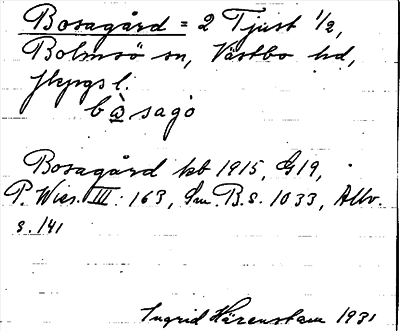 Bosagård = 2 Tjust 1/2,
Bolmsö sn, Västbo hd,
Jkpgs l.
bà̱sagọ
Bosagård kb 1915, G19,
P. Wies. III: 163, Sm. B.s. 1033, Allv.
s. 141
Ingrid Härenstam 1931